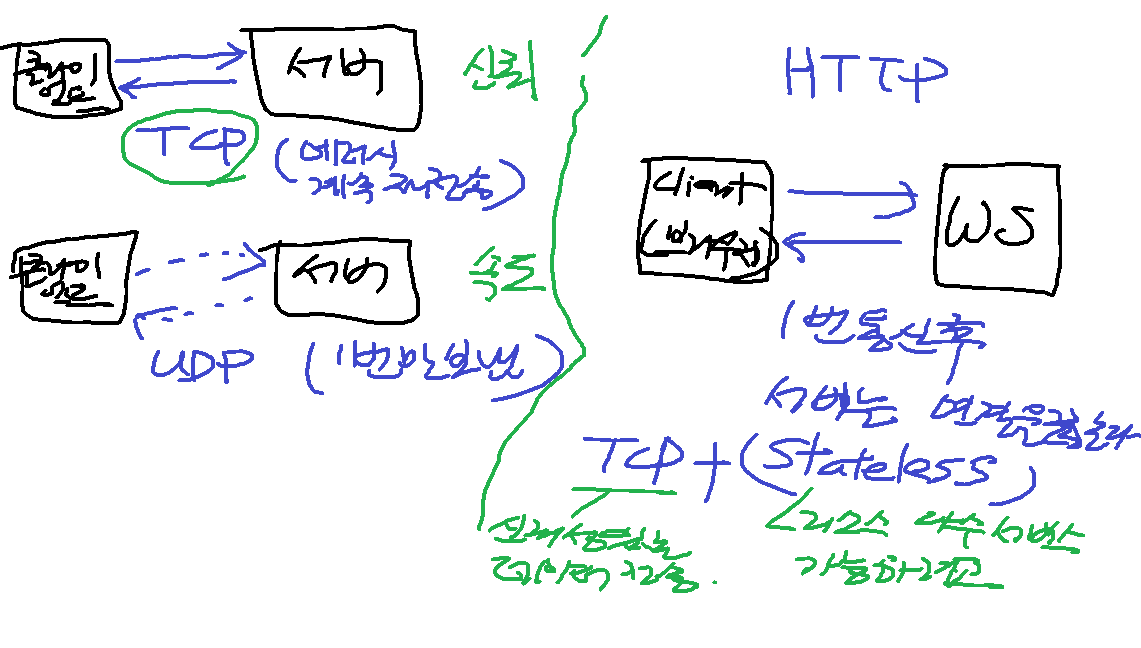 클라이
언트
서버
신뢰
TCP
(에러시
계속 재전송)
클라이
언트
서버
속도
UDP (1번만 보냄)
HTTP
Client
(브라우저)
WS
1번 통신후
서버는 연결을 끊는다
TCP + (Stateless)
데이터 전송.
다수 서비스
가능하려고